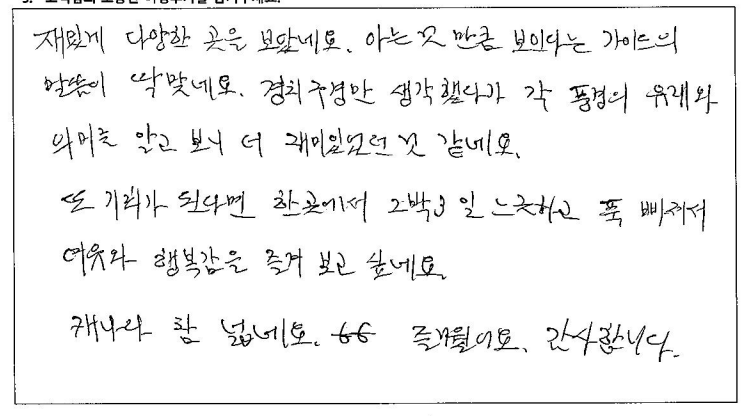 재밌게 다양한 곳을 보았네요. 아는 것 만큼 보인다는 가이드의
말씀이 딱 맞네요. 경치구경만 생각했다가 각 풍경의 유래와
의미를 알고 보니 더 재미있었던 것 같네요.
또 기회가 된다면 한곳에서 2박3일 느긋하고 푹 빠져서
여유와 행복감을 즐겨 보고 싶네요.
캐나다 참 넓네요. ㅎㅎ 즐거웠어요. 감사합니다.